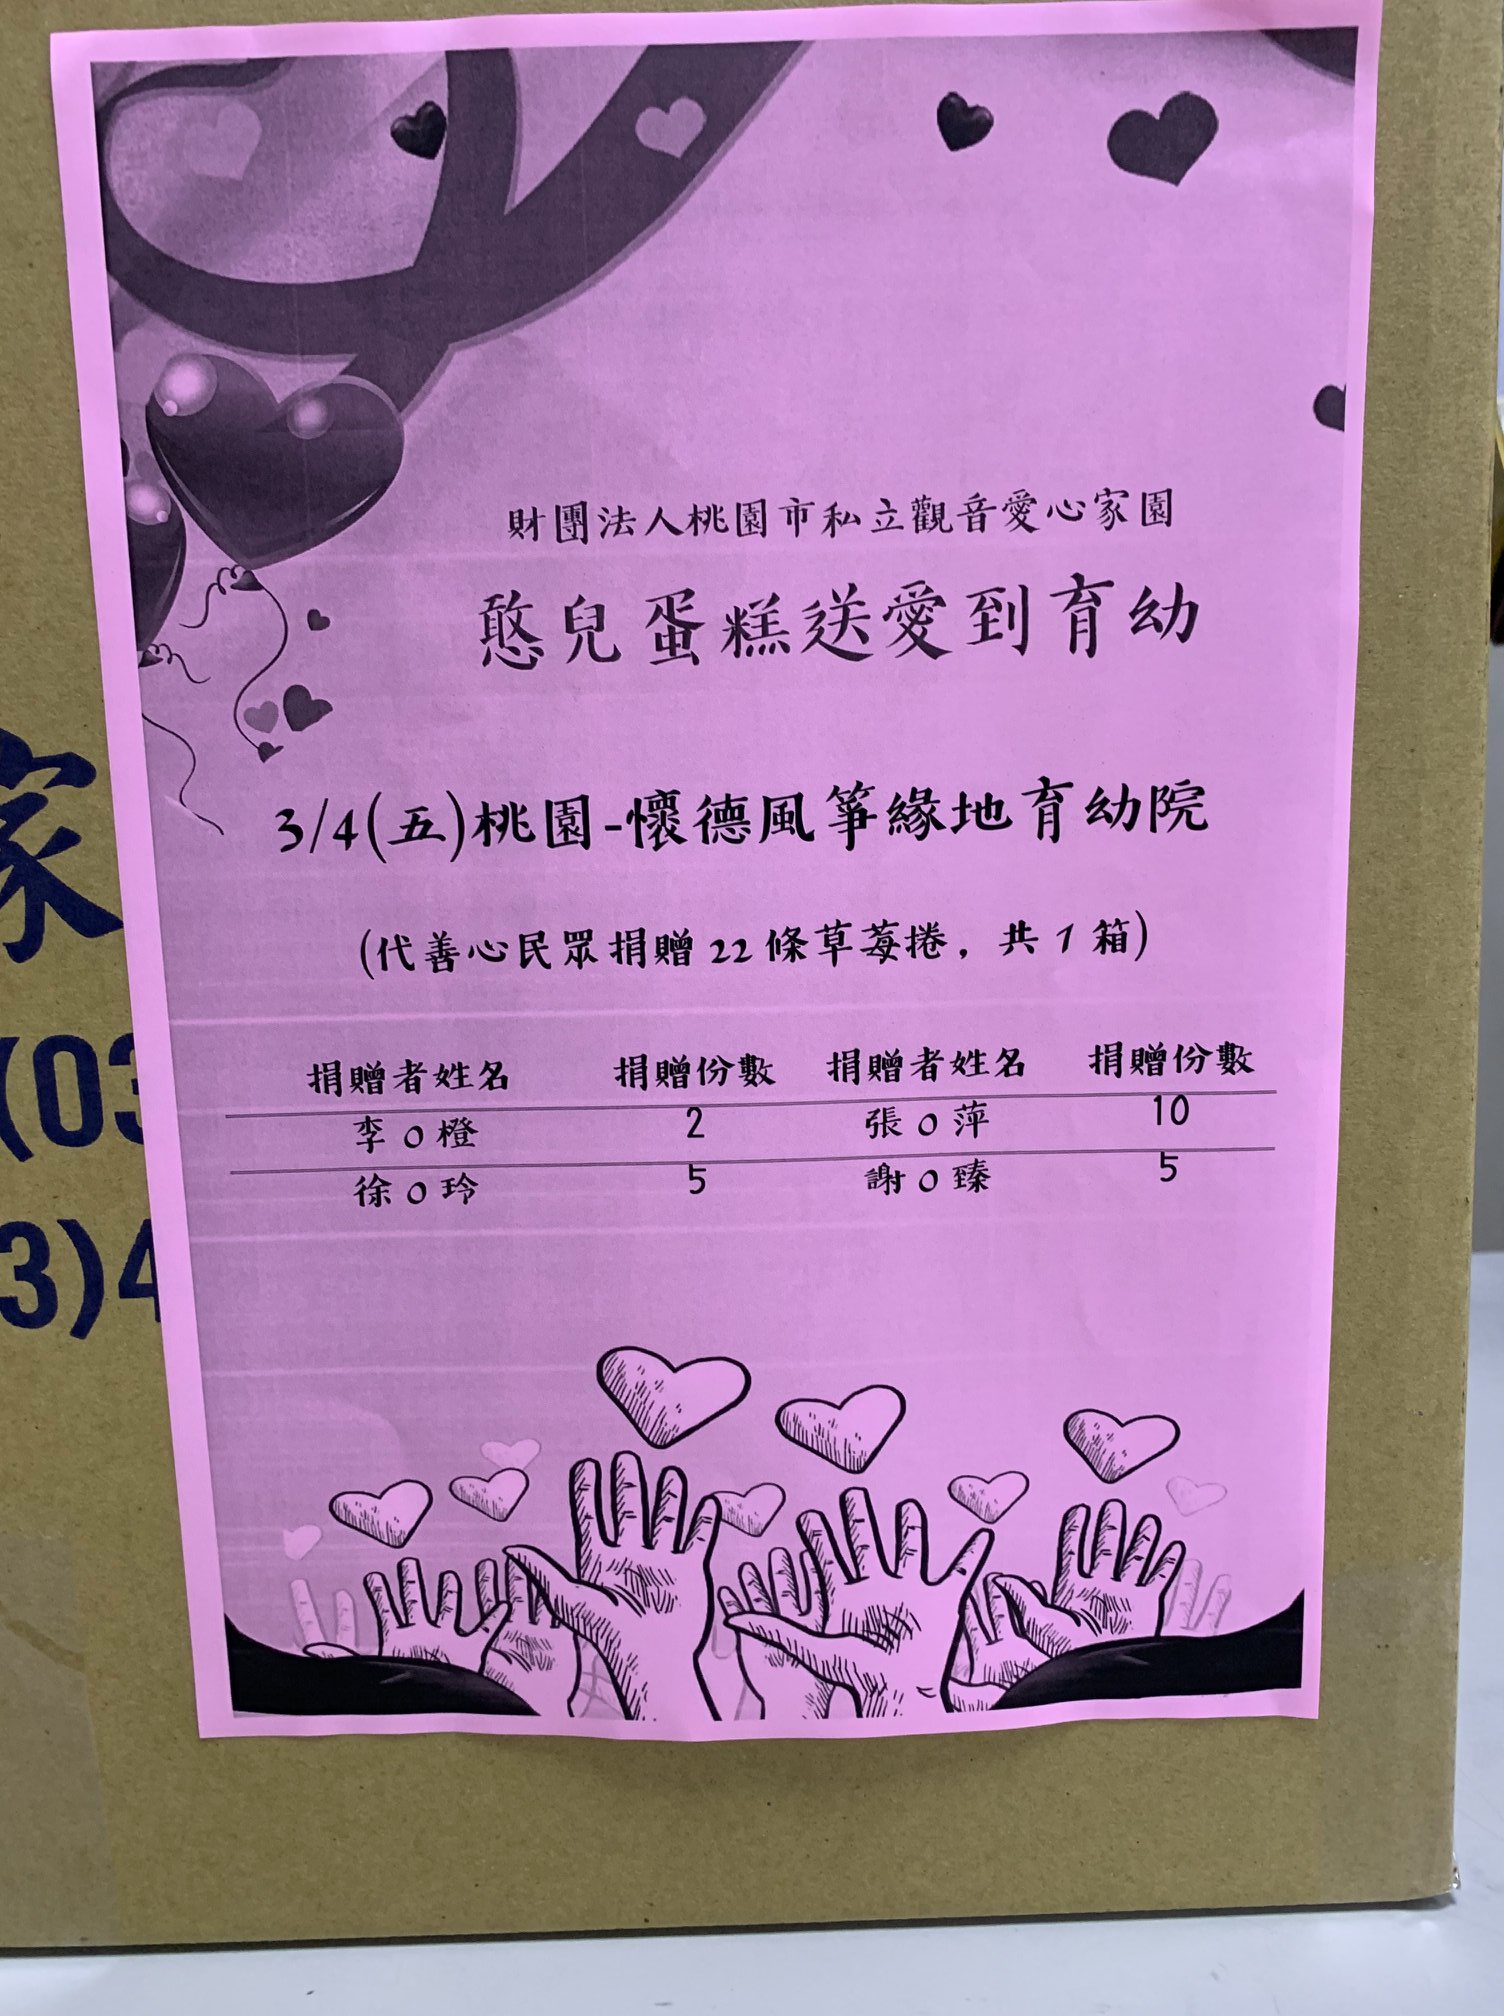 財團法人桃園市私立觀音愛心家園
憨兒蛋糕送愛到育幼
3/4(五)桃園-懷德風箏緣地育幼院
(代善心民眾捐贈 22 條草莓捲，共 1 箱)
捐贈者姓名 捐贈份數 捐贈者姓名 捐贈份數
李 O 橙 2 張 O 萍 10
徐 O 玲 5 謝 O 臻 5
家
(03
3)4